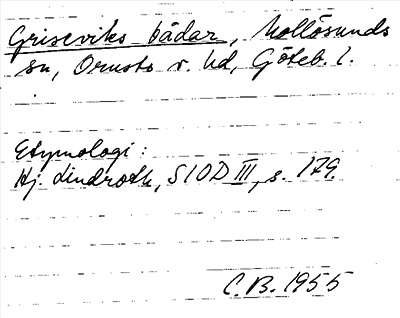 Griseviks bådar, Mollösunds
sn, Orusts v. hd, Göteb. l.
Etymologi:
Hj. Lindroth, SIOD III, s. 179.
C. B. 1955